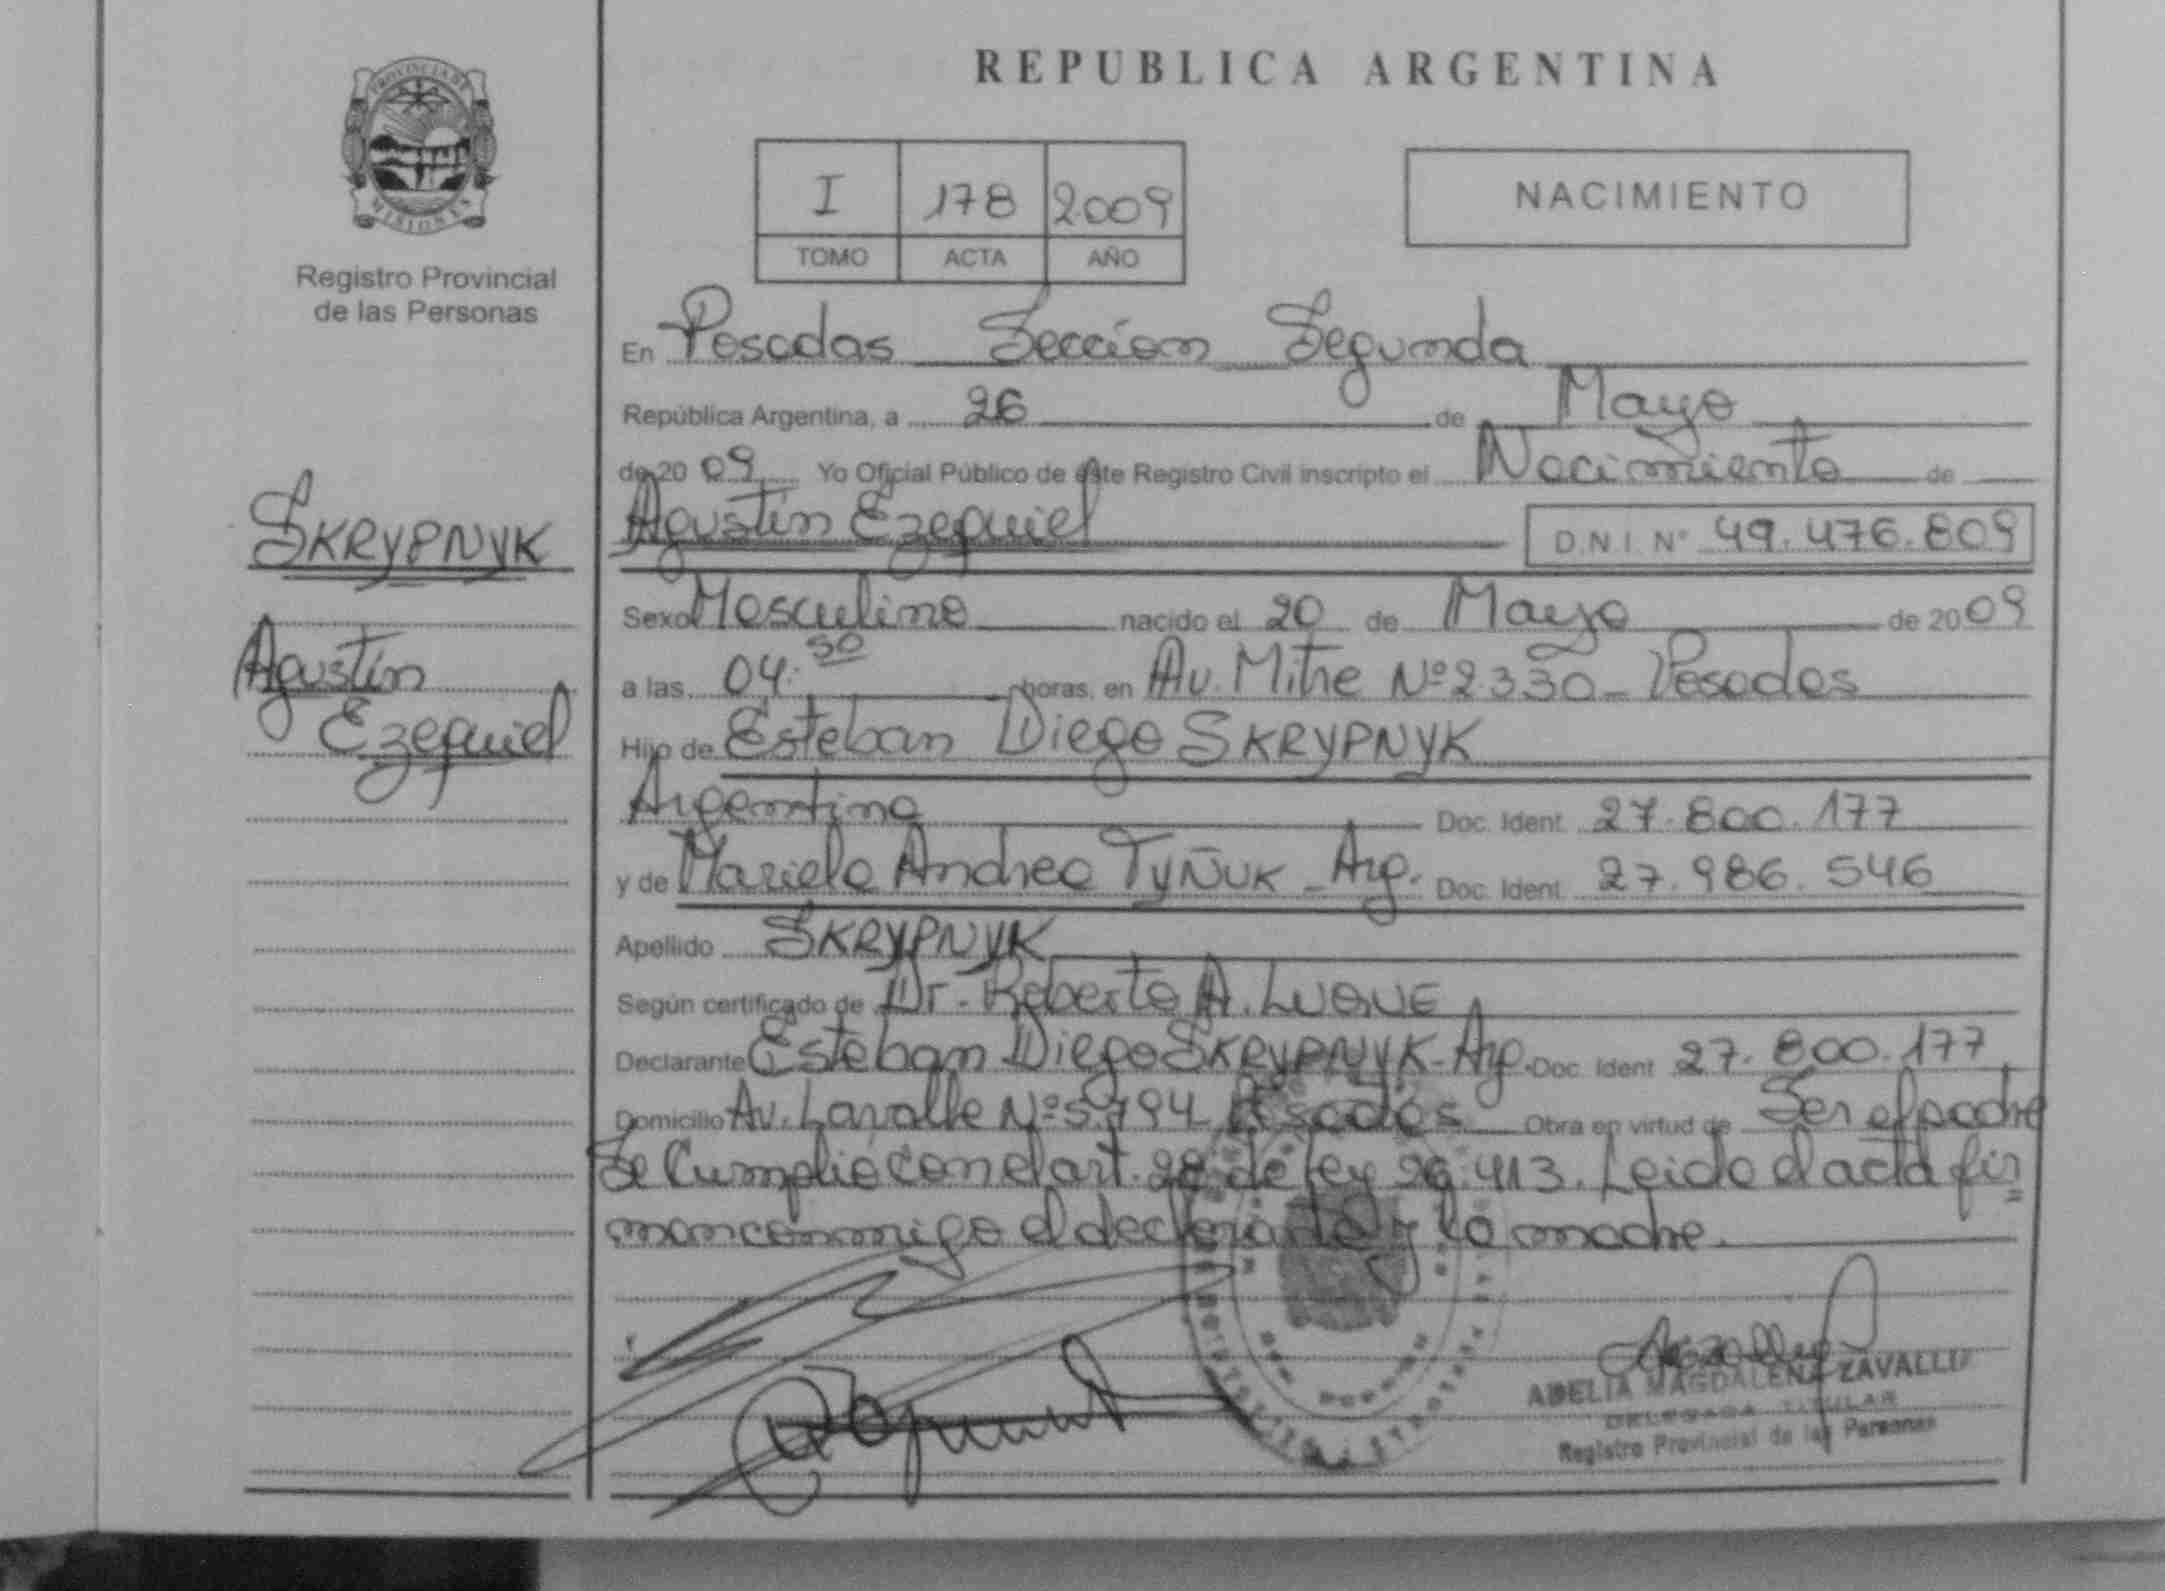 REPUBLICA ARGENTINA
PROVINCIA DE
MISIONES
Registro Provincial
de las Personas
I 178 2009
TOMO ACTA AÑO
NACIMIENTO
En Posadas Sección Segunda
República Argentina, a 26 de Mayo
de 20 09 Yo Oficial Público de este Registro Civil inscripto el Nacimiento de
SKRYPNYK
Agustín Ezequiel D.N.I. Nº 49.476.809
Sexo Masculino nacido el 20 de Mayo de 2009
Agustín
Ezequiel
a las 04.50 horas, en Av. Mitre Nº 2330 Posadas
Hijo de Esteban Diego SKRYPNYK
Argentina Doc. Ident. 27.800.177
y de Mariela Andrea TYÑUK - Arg. Doc. Ident. 27.986.546
Apellido SKRYPNYK
Según certificado de Dr. Roberto A. LUQUE
Declarante Esteban Diego SKRYPNYK - Arg. Doc. Ident 27.800.177
Domicilio Av. Lavalle Nº 5.794 Posadas Obra en virtud de Ser el padre
Se Cumplió con el art. 28 de ley 26.413. Leida el acta fir
man conmigo el declarante y la madre.
ADELIA MAGDALENA ZAVALLU
DELEGADA TITULAR
Registro Provincial de las Personas